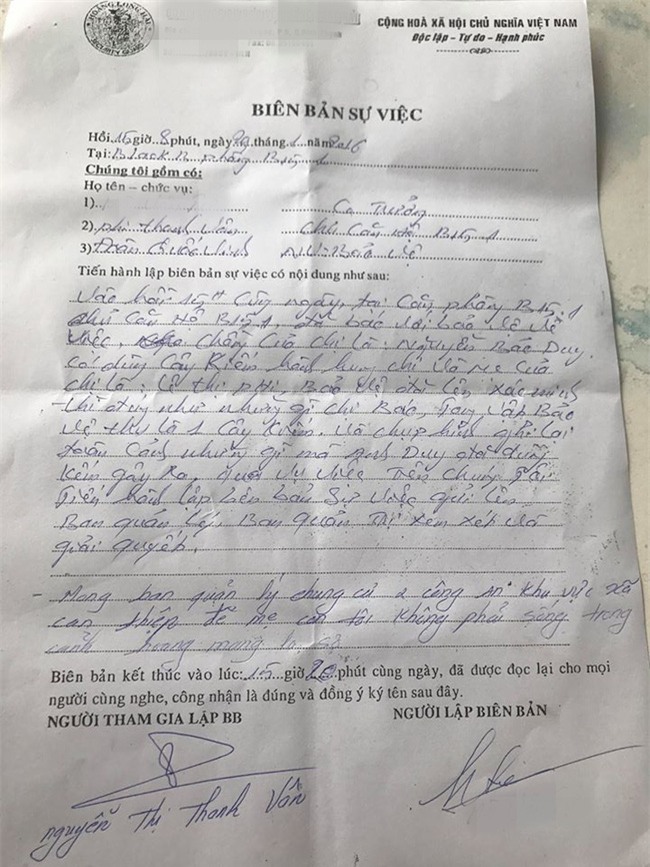 HOÀNG LONG HẢI
SECURITY GUARD
CỘNG HOÀ XÃ HỘI CHỦ NGHĨA VIỆT NAM
Độc lập - Tự do - Hạnh phúc
BIÊN BẢN SỰ VIỆC
Hồi giờ 8 phút, ngày tháng 1 năm 2016
Tại: Block B phòng
Chúng tôi gồm có:
Họ tên – chức vụ:
1) Ca Trưởng
2) thanh Vân chủ căn hộ
3) Đoàn Quốc NV Bảo vệ
Tiến hành lập biên bản sự việc có nội dung như sau:
Vào hồi 15h cùng ngày, tại căn phòng B15.1
chủ căn hộ B15.1, đã báo với bảo vệ về
việc, chồng của chị là: Nguyễn Bảo Duy
có dùng cây kiếm hành hung chị và mẹ của
chị là: Lê thị Bảo vệ đã lên xác minh
thì đúng như những gì chị Báo, Bảo
vệ thu là 1 cây kiếm, và chụp hình ghi lại
toàn cảnh những gì mà Anh Duy đã dùng
kiếm gây ra, qua vụ việc trên chúng tôi
Tiến hành lập bên bản sự việc gửi lên
Ban quản lý, Ban quản Trị xem xét và
giải quyết.
- Mong ban quản lý chung cư & công an khu vực xã
can thiệp để mẹ con tôi không phải sống trong
cảnh hoang mang lo sợ
Biên bản kết thúc vào lúc: 15 giờ 20 phút cùng ngày, đã được đọc lại cho mọi
người cùng nghe, công nhận là đúng và đồng ý ký tên sau đây.
NGƯỜI THAM GIA LẬP BB NGƯỜI LẬP BIÊN BẢN
nguyễn Thị Thanh Vân